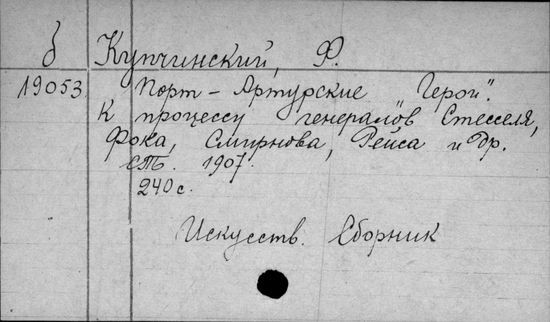 б Купчинский, Ф.
19053. "Порт-Артурские Герои".
К процессу генералов Стесселя,
Фока, Смирнова, Рейса и др.
СПб. 1907.
240 с.
Искусств. Сборник